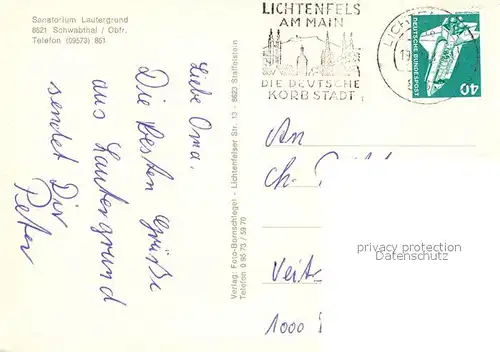 Sanatorium Lautergrund
8621 Schwabthal / Obfr.
Telefon (09573) 861
Liebe Oma.
Die besten Grüße
aus Lautergrund
sendet Dir
Peter
Verlag: Foto-Bornschlegel - Lichtenfelser Str. 13 - 8623 Staffelstein
Telefon 0 95 73 / 59 70
LICHTENFELS
AM MAIN
DIE DEUTSCHE
KORBSTADT
DEUTSCHE BUNDESPOST
40
An
Ch.
Veit
1000
privacy protection
Datenschutz